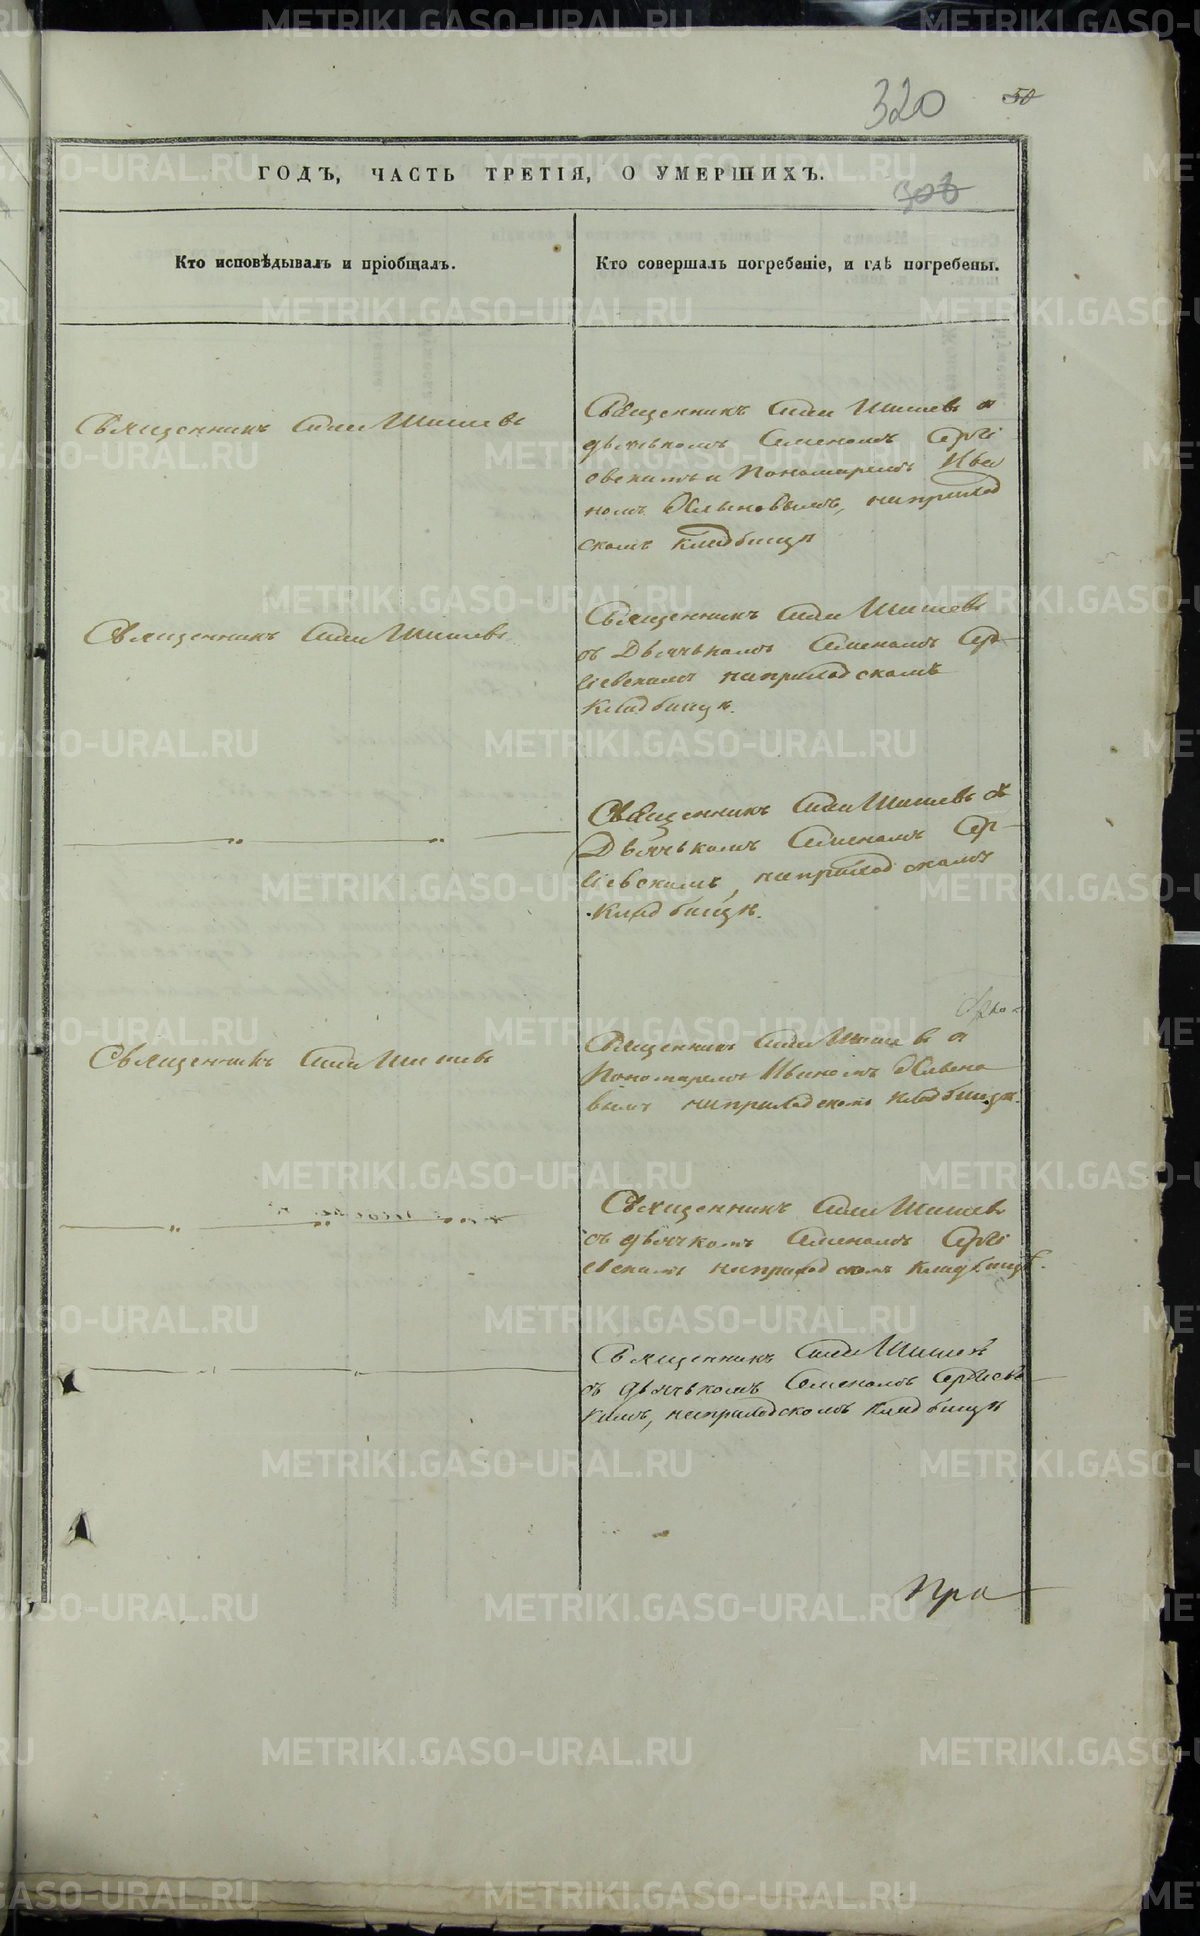 320
50
ГОДЪ, ЧАСТЬ ТРЕТІЯ, О УМЕРШИХЪ.
308
Кто исповѣдывалъ и пріобщалъ.
Кто совершалъ погребеніе, и гдѣ погребены.
Священникъ Шишевъ
Священникъ Шишевъ съ
дьячькомъ Семеномъ Сергі
евскимъ и Пономаремъ Ива
номъ Хлыновымъ, на приход
скомъ кладбищѣ
Священникъ Шишевъ
Священникъ Шишевъ
съ Дьячькомъ Семеномъ Сер
гіевскимъ на приходскомъ
кладбищѣ.
Священникъ Шишевъ съ
Дьячькомъ Семеномъ Сер
гіевскимъ, на приходскомъ
кладбищѣ.
Священникъ Шишевъ
Священникъ Шишевъ съ
Пономаремъ Иваномъ Хлыно
вымъ на приходскомъ кладбищѣ.
Священникъ Шишевъ
съ дьячкомъ Семеномъ Сергі
евскимъ на приходскомъ кладбищѣ.
Священникъ Шишевъ
съ дьячькомъ Семеномъ Сергіевс
кимъ, на приходскомъ кладбищѣ
METRIKI.GASO-URAL.RU